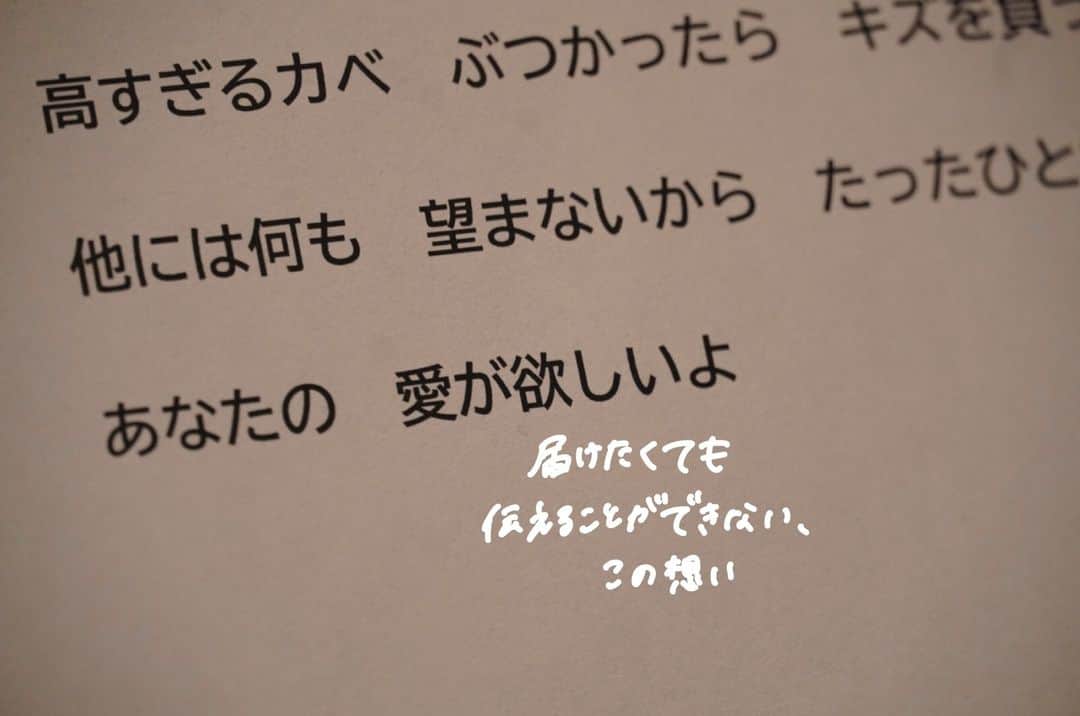 高すぎるカベ　ぶつかったら　キズを負っ
他には何も　望まないから　たったひと
あなたの　愛が欲しいよ
届けたくても
伝えることができない、
この想い